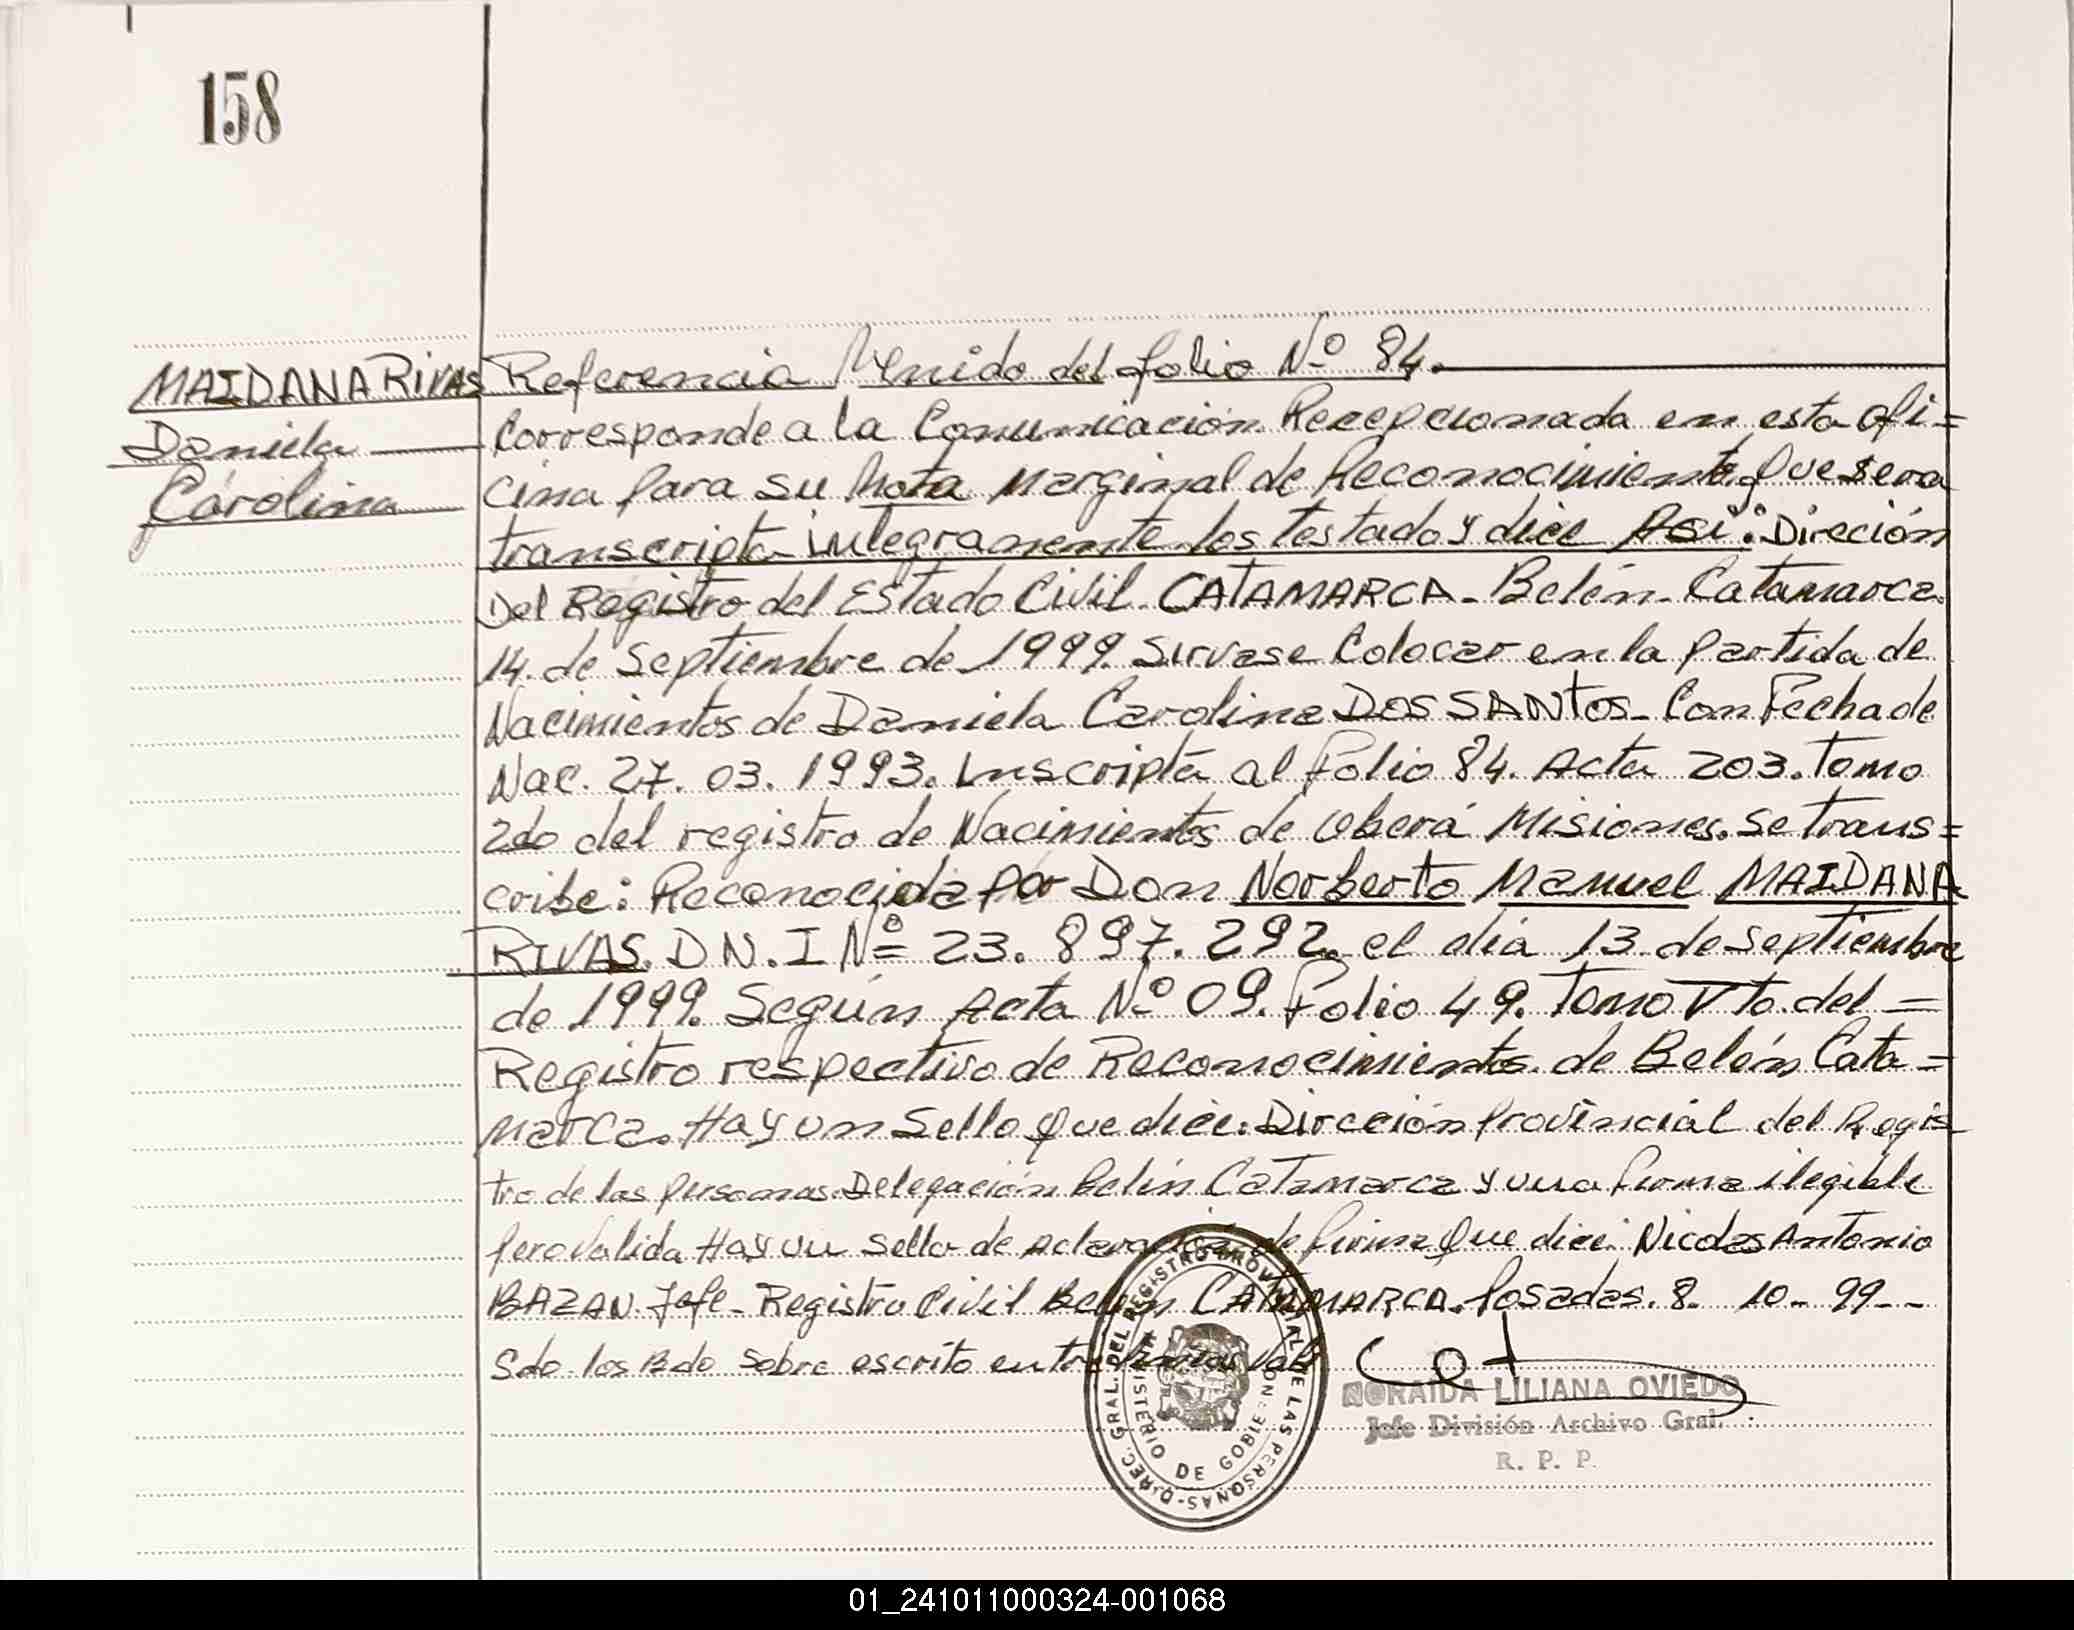 158
MAIDANA RIVAS
Daniela
Carolina
Referencia Venido del folio Nº 84.
Corresponde a la Comunicación Recepcionada en esta ofi=
cina para su Nota Marginal de Reconocimiento, que sera
transcripta integramente los testado y dice Asi: Direción
Del Registro del Estado Civil. CATAMARCA - Belén - Catamarca.
14. de septiembre de 1999. Sirvase Colocar en la partida de
Nacimientos de Daniela Carolina DOS SANTOS - Con Fecha de
Nac. 27. 03. 1993. Inscripta al folio 84. Acta 203. Tomo
2do del registro de Nacimientos de Oberá Misiones. Se trans=
cribe: Reconocida por Don Norberto Manuel MAIDANA
RIVAS. D N. I Nº= 23. 897. 292. el dia 13. de septiembre
de 1999. Según Acta Nº 09. Folio 49. Tomo Vto. del =
Registro respectivo de Reconocimientos de Belén Cata=
marca. Hay un Sello que dice: Dirección Provincial del Regis
tro de las personas. Delegación Belén Catamarca y una firma ilegible
pero valida Hay un sello de aclaración de firma que dice: Nicolas Antonio
BAZAN. Jefe - Registro Civil Belén CATAMARCA. Posadas. 8. 10 - 99 - -
Sdo. los Bdo sobre escrito entre lineas Vale
DIREC. GRAL. DEL REGISTRO PROVINCIAL DE LAS PERSONAS
MINISTERIO DE GOBIERNO
NORAIDA LILIANA OVIEDO
Jefe División Archivo Gral.
R. P. P.
01_241011000324-001068